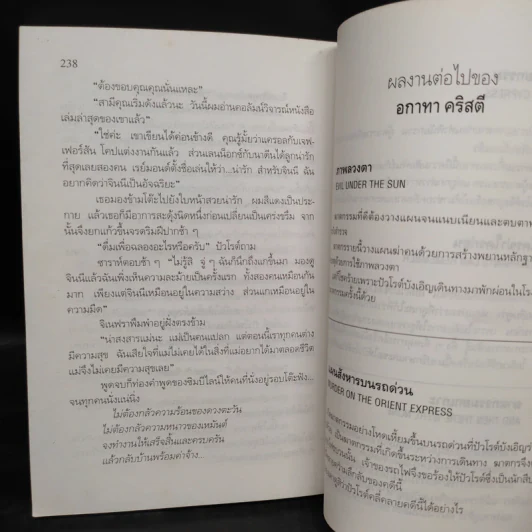 238
"ต้องขอบคุณคุณนั่นแหละ"
"สามีคุณเริ่มดังแล้วนะ วันนี้ผมอ่านคอลัมน์วิจารณ์หนังสือ
เล่มล่าสุดของเขาแล้ว"
"ใช่ค่ะ เขาเขียนได้ค่อนข้างดี คุณรู้มั้ยว่าแครอลกับเจฟ-
เฟอร์สัน โคปแต่งงานกันแล้ว ส่วนเลนน็อกซ์กับนาดีนได้ลูกน่ารัก
ที่สุดเลยสองคน เรย์มอนด์ตั้งชื่อเล่นให้ว่า...น่ารัก สำหรับจินนี ฉัน
อยากคิดว่าจินนีเป็นอัจฉริยะ"
เธอมองข้ามโต๊ะไปยังใบหน้าสวยน่ารัก ผมสีแดงเป็นประ-
กาย แล้วเธอก็มีอาการสะดุ้งนิดหนึ่งก่อนเปลี่ยนเป็นเคร่งขรึม จาก
นั้นจึงยกแก้วขึ้นจรดริมฝีปากช้า ๆ
"ดื่มเพื่อฉลองอะไรหรือครับ" ปัวโรต์ถาม
ซาราห์ตอบช้า ๆ "ไม่รู้สิ จู่ ๆ ฉันก็นึกถึงแกขึ้นมา มองดู
จินนีแล้วฉันเพิ่งเห็นความละม้ายเป็นครั้งแรก ทั้งสองคนเหมือนกัน
มาก เพียงแต่จินนีเหมือนอยู่ในความสว่าง ส่วนแกเหมือนอยู่ใน
ความมืด"
จิเนฟราพึมพำอยู่ฝั่งตรงข้าม
"น่าสงสารแม่นะ แม่เป็นคนแปลก แต่ตอนนี้เราทุกคนต่าง
มีความสุข ฉันเสียใจที่แม่ไม่เคยได้ในสิ่งที่แม่อยากได้มาตลอดชีวิต
แม่จึงไม่เคยมีความสุขเลย"
พูดจบก็ท่องคำพูดของซิมบีไลน์ให้คนที่นั่งอยู่รอบโต๊ะฟัง...
จนทุกคนนั่งแน่นิ่ง
ไม่ต้องกลัวความร้อนของดวงตะวัน
ไม่ต้องกลัวความหนาวของเหมันต์
จงทำงานให้เสร็จสิ้นและครบครัน
แล้วกลับบ้านพร้อมค่าจ้าง...
ผลงานต่อไปของ
อกาทา คริสตี
ภาพลวงตา
EVIL UNDER THE SUN
ฆาตกรรมที่ดีต้องวางแผนจนแนบเนียนและตบตา
ฆาตกรรายนี้วางแผนฆ่าคนด้วยการสร้างพยานหลักฐา
ใช้ภาพลวงตา
เพราะปัวโรต์บังเอิญเดินทางมาพักผ่อนในโร
ครั้งนี้ด้วย
แผนสังหารบนรถด่วน
MURDER ON THE ORIENT EXPRESS
ฆาตกรรมอย่างโหดเหี้ยมขึ้นบนรถด่วนที่ปัวโรต์บังเอิญ
เป็นฆาตกรรมที่เกิดขึ้นระหว่างการเดินทาง ฆาตกรจึง
เจ้าของรถไฟจึงขอร้องให้ปัวโรต์ซึ่งเป็นนักสืบ
ลึกลับของคดีนี้
ปัวโรต์คลี่คลายคดีนี้ได้อย่างไร